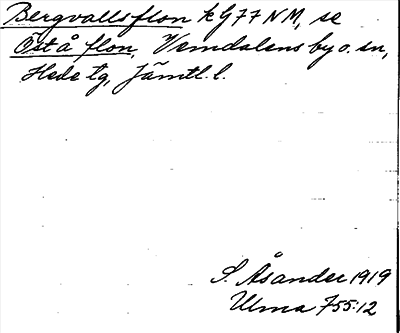 Bergvallsflon k G77 NM, se
Östå flon, Vemdalens by o. sn,
Hede tg, Jämtl. l.
S. Åsander 1919
Ulma 755:12